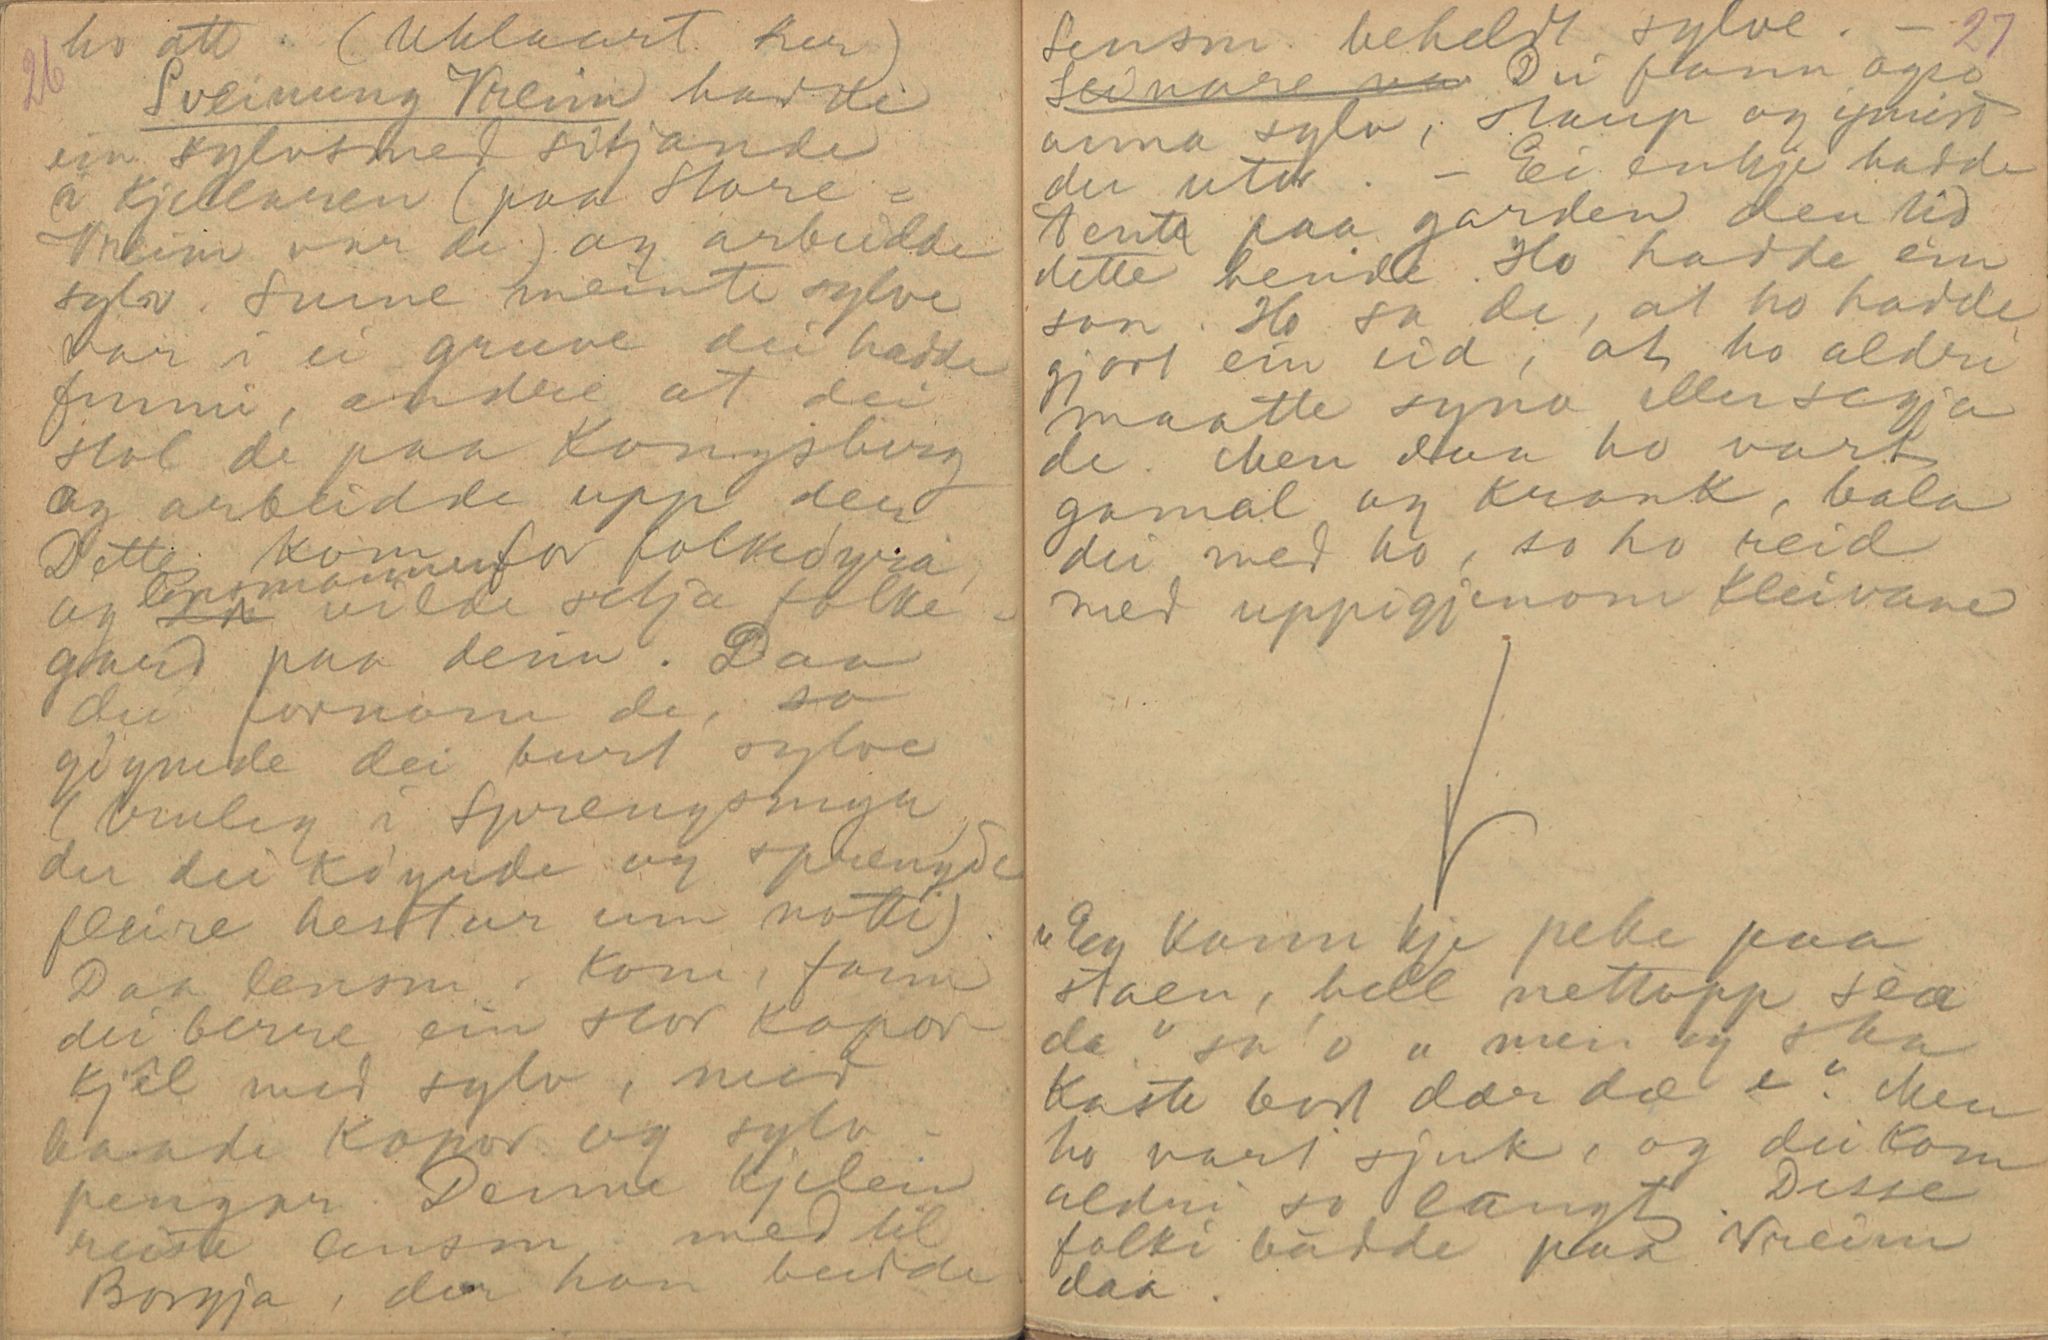 26
ho att. (Uklaart her)
Sveinung Vreim hadde
ein sylvsmed sitjande
i kjellaren (paa Store-
Vreim var de) og arbeidde
sylv. Sume meinte sylve
var i ei gruve dei hadde
funni, andre at dei
stol de paa Kongsberg
og arbeidde upp der
Dette kom for folkeöyra,
og lensmannen vilde setja folke-
gard paa deim. Daa
dei fornom de, so
göymde dei burt sylve
(venleg i Sprengsmyr
der dei köyrde og sprengde
fleire hestur um notti).
Daa lensm. kom, fann
dei berre ein stor kopar
kjel med sylv, med
baade kopar og sylv-
pengar. Denne kjelein
reiste lensm. med til
Borgja, der han budde
27
Lensm. beheldt sylve. -
Seinare va Dei fann ogso
anna sylv, staup og ymist
der utor. - Ei enkje hadde
tent paa garden den tid
dette hende. Ho hadde ein
son. Ho sa de, at ho hadde
gjort ein eid, at ho aldri
maatte syna eller segja
de. Men daa ho vart
gamal og krank, bala
dei med ho, so ho reid
med uppigjenom Kleivane
"Eg kann kje peke paa
staen, hell nettopp sea
da" sa o "men eg ska
kaste bort dær dæ e". Men
ho vart sjuk, og dei kom
aldri so langt. Disse
folki budde paa Vreim
daa.